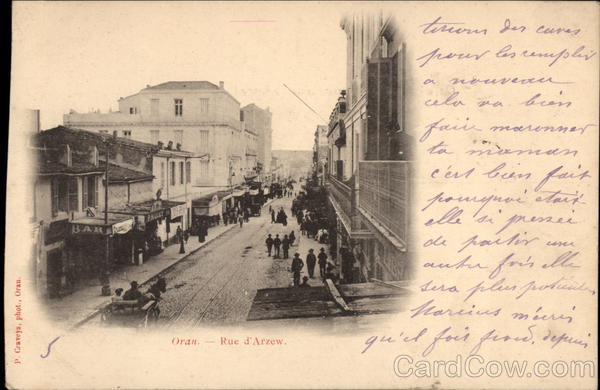 terions des caves
pour les remplir
a nouveau
cela va bien
faire maronner
ta maman
c'est bien fait
pourquoi etait
elle si pressée
de partir une
autre fois elle
sera plus
m'écris
qu'il fait froid, depuis
BAR
P. Graveya, phot., Oran.
5
Oran. — Rue d'Arzew.
CardCow.com